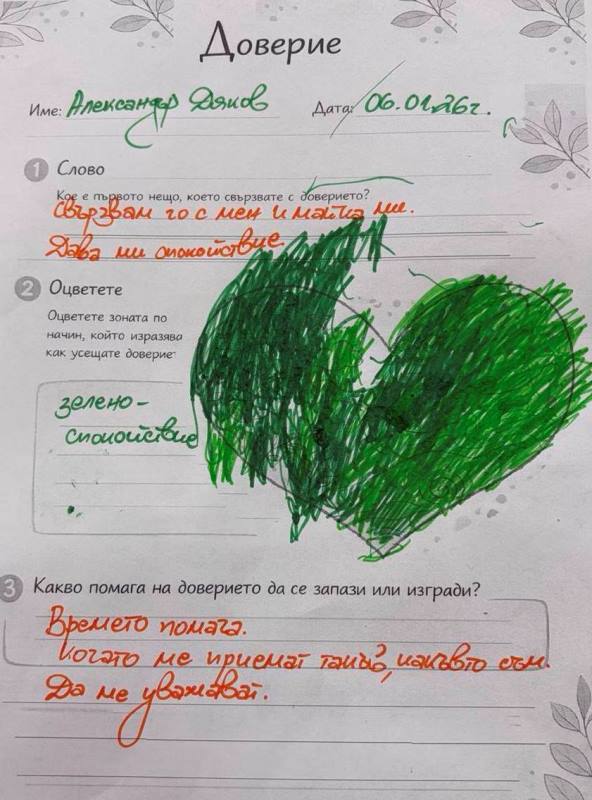 Доверие
Име: Александър Дяков Дата: 06.01.26г.
1 Слово
Кое е първото нещо, което свързвате с доверието?
Свързвам го с мен и майка ми.
Дава ми спокойствие
2 Оцветете
Оцветете зоната по
начин, който изразява
как усещате доверие
зелено -
спокойствие
3 Какво помага на доверието да се запази или изгради?
Времето помага.
Когато ме приемат такъв, какъвто съм.
Да ме уважават.